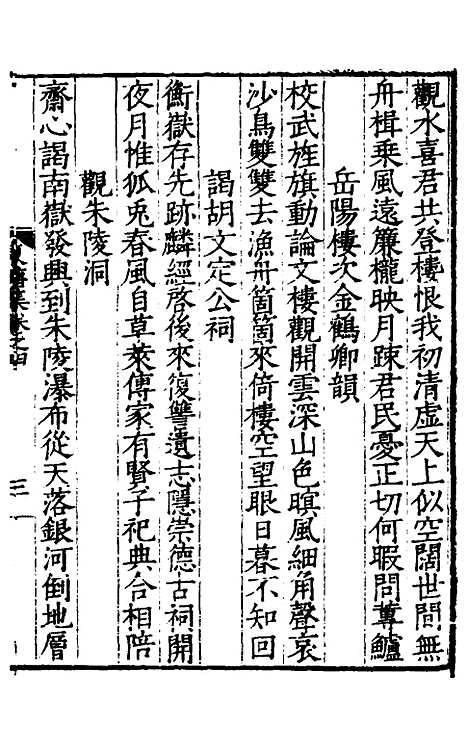 觀水喜君共登樓恨我初清虛天上似空闊世間無
舟楫乘風遠簾櫳映月踈君民憂正切何暇問蓴鱸
岳陽樓次金鶴卿韻
校武旌旗動論文樓觀開雲深山色暝風細角聲哀
沙鳥雙雙去漁舟箇箇來倚樓空望眼日暮不知回
謁胡文定公祠
衡嶽存先跡麟經啓後來復讐遺志隱崇德古祠開
夜月惟狐兎春風自草萊傳家有賢子祀典合相陪
觀朱陵洞
齋心謁南嶽發興到朱陵瀑布從天落銀河倒地層
集卷之四
三